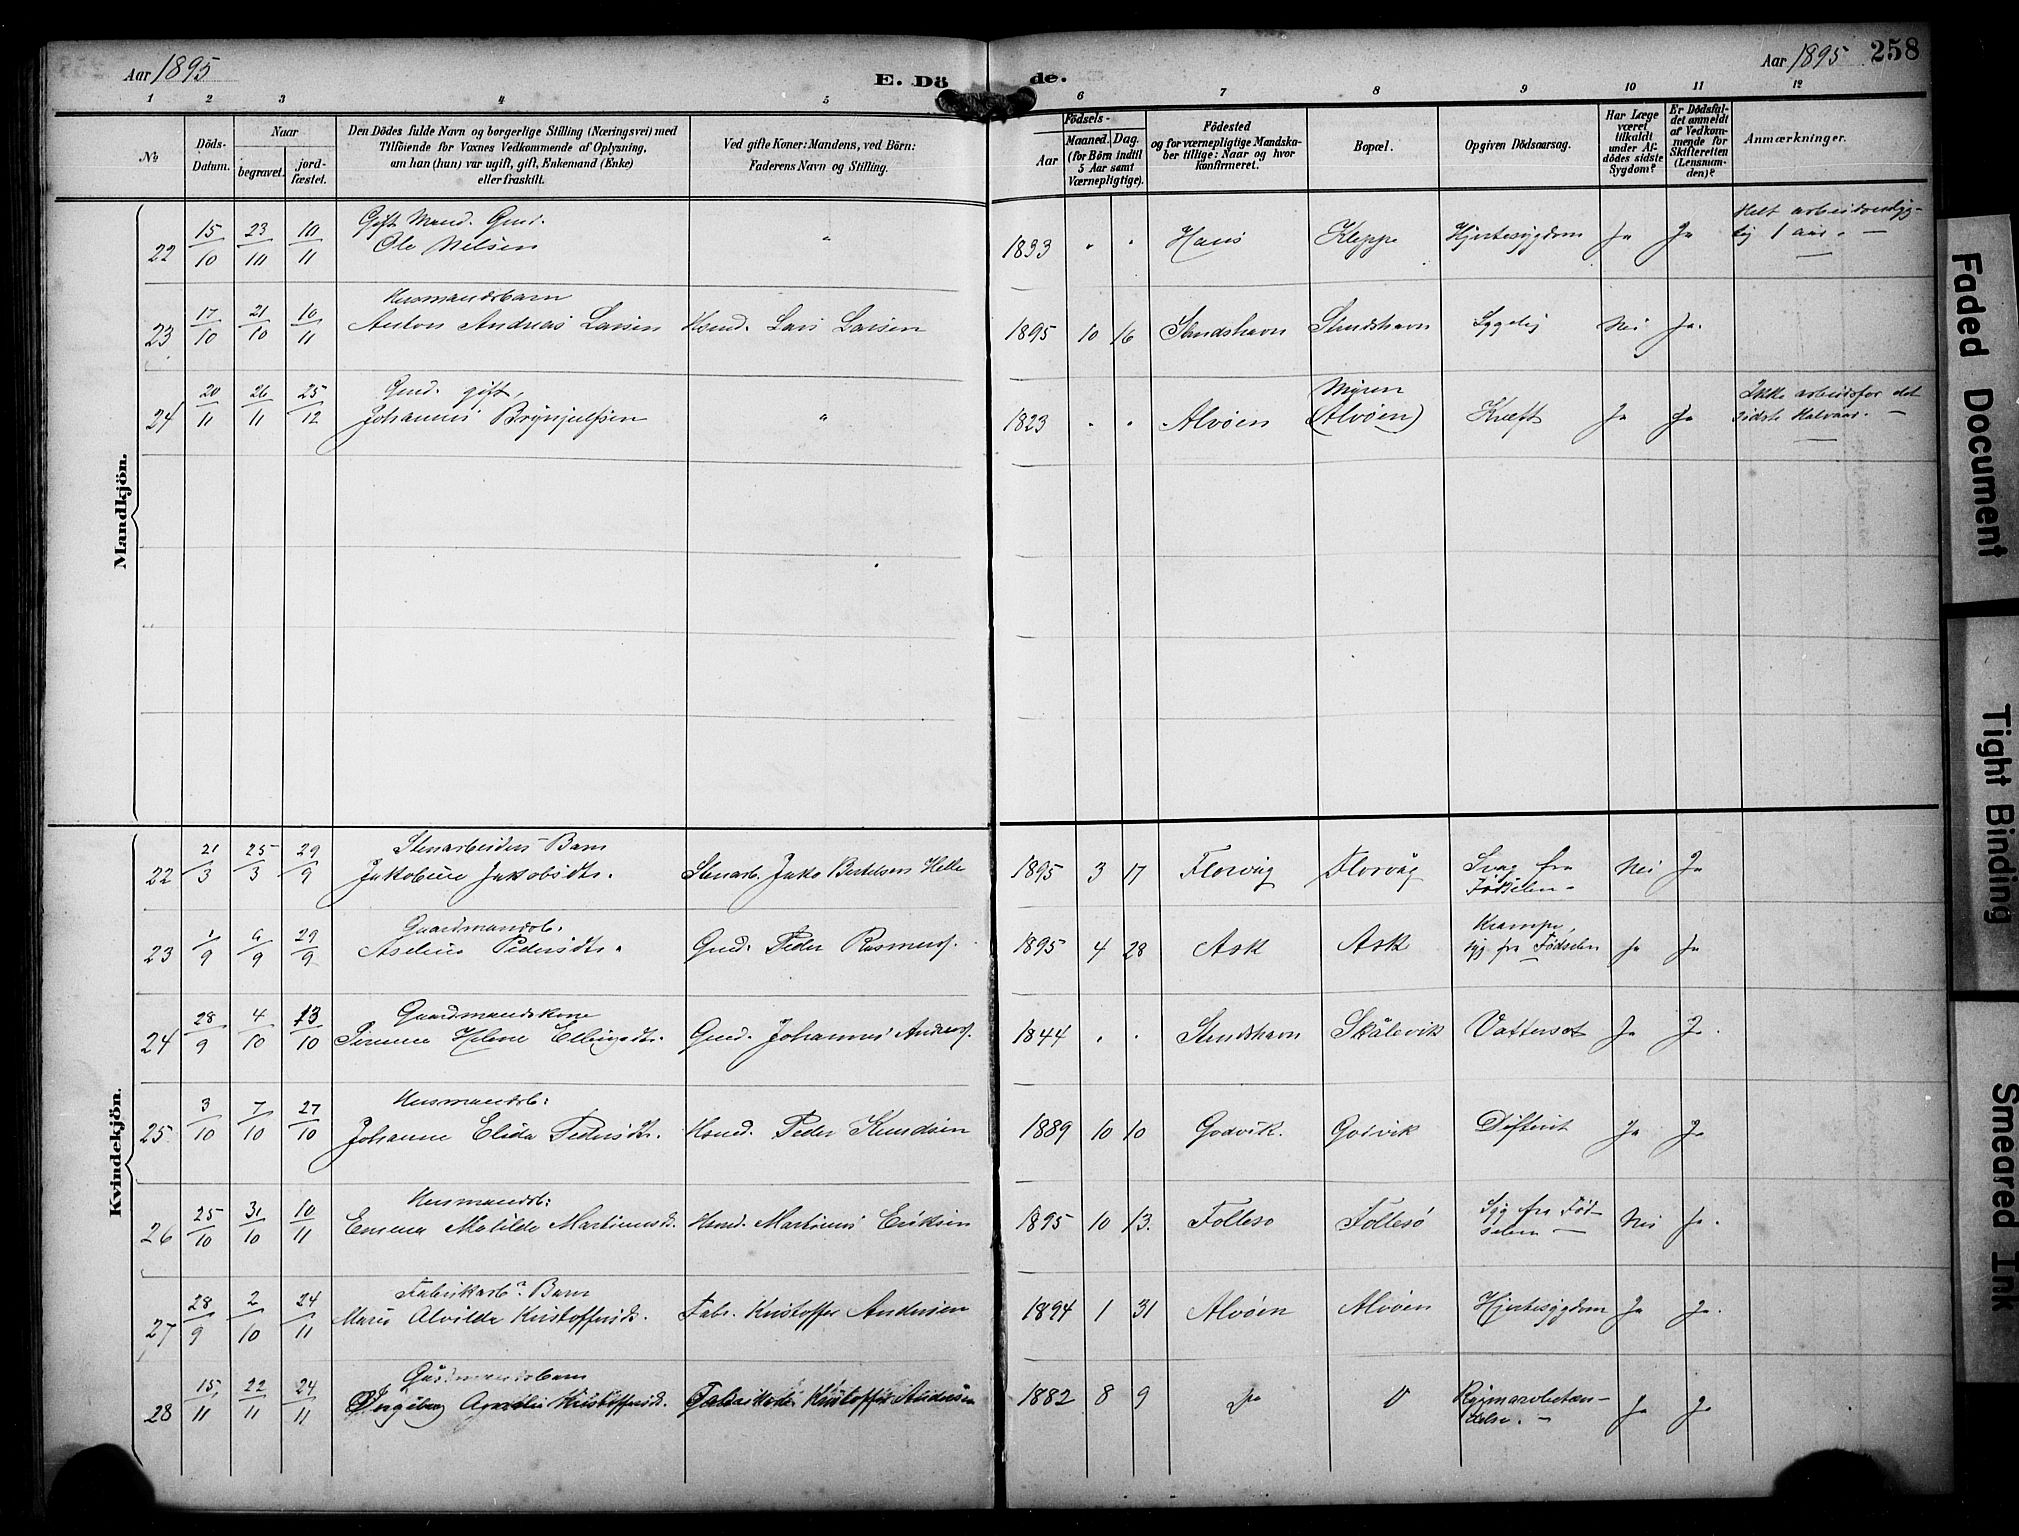 Aar 1895
E. Döde.
Aar 1895 258
1 2 3 4 5 6 7 8 9 10 11 12
No
Döds-Datum.
Naar
begravet.
jord-fæstet.
Den Dödes fulde Navn og borgerlige Stilling (Næringsvei) med
Tilföiende for Voxnes Vedkommende af Oplysning,
om han (hun) var ugift, gift, Enkemand (Enke)
eller fraskilt.
Ved gifte Koner: Mandens, ved Börn:
Faderens Navn og Stilling.
Födsels-
Aar
Maaned. Dag.
(for Börn indtil
5 Aar samt
Værnepligtige).
Födested
og for værnepligtige Mandska-
ber tillige: Naar og hvor
konfirmeret.
Bopæl.
Opgiven Dödsaarsag.
Har Læge
været
tilkaldt
under Af-
dödes sidste
Sygdom?
Er Dödsfal-
det anmeldt
af Vedkom-
mende for
Skifteretten
(Lensman-
den)?
Anmærkninger.
Mandkjön.
Gift Mand. Gmd.
22 15/10 23/10 10/11 Ole Nilsen " 1833 " " Haus Kleppe Hjertesygdom Ja Ja Helt arbeidsudyg-
tig 1 aar. —
Husmandsbarn
23 17/10 21/10 10/11 Anton Andreas Larsen Hsmd. Lars Larsen 1895 10 16 Strudshavn Strudshavn Sygelig Nei Ja.
Gmd. gift,
24 20/11 26/11 25/12 Johannes Brynjulfsen " 1823 " " Alvøen Myren
(Alvøen) Kræft Ja Ja Ikke arbeidsfør det
sidste Halvaar. —
Kvindekjön.
Stenarbeiders Barn
22 21/3 25/3 29/9 Jakobine Jakobsdtr. Stenarb. Jako Bertelsen Helle 1895 3 17 Florvåg Florvåg Svag fra
Fødselen – Nei Ja
Gaardmandsb.
23 1/9 6/9 29/9 Aseline Pedersdtr. Gmd. Peder Rasmus. 1895 4 28 Ask Ask Krampe,
syg fra Fødselen Ja Ja
Gaardmandskone
24 28/9 4/10 13/10 Helene Gmd. Johannes Anders. 1844 " " Strudshavn Skålevik Vattersot Ja Ja.
Husmandsb:
25 3/10 7/10 27/10 Johanne Elida Pedersdtr. Hsmd. Peder Knudsen 1889 10 10 Godvik. Godvik Difterit Ja Ja
Husmandsb:
26 25/10 31/10 10/11 Emma Matilde Martinusd. Hsmd. Martinus Eriksen 1895 10 13. Follesø Follesø Syg fra Fød-
selen — Nei Ja.
Fabrikarb. Barn
27 28/9 2/10 24/11 Marie Alvilde Kristoffersd. Fabr. Kristoffer Andersen 1894 1 31 Alvøen Alvøen Hjertesygdom Ja Ja.
Gårdmandsbarn
28 15/11 22/11 24/11 Ingeborg Kristoffersd. Fabrikarb. Kristoffer Andersen 1882 8 9 Do Rygmarvsbetæn-
delse. – Ja Ja
Faded Document
Tight Binding
Smeared Ink